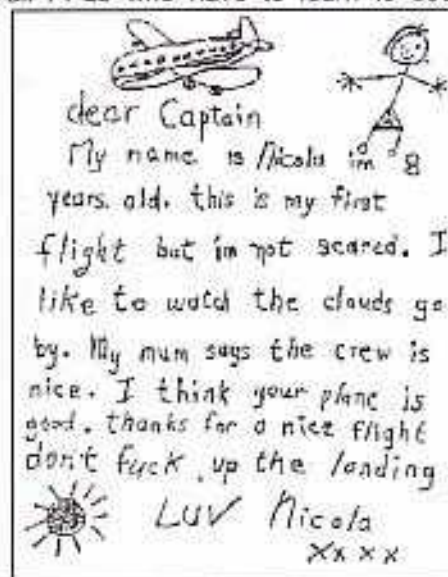 dear Captain
My name is Nicola im 8
years old. this is my first
flight but im not scared. I
like to watch the clouds go
by. My mum says the crew is
nice. I think your plane is
good. thanks for a nice flight
don't fuck up the landing
LUV Nicola
XXXX